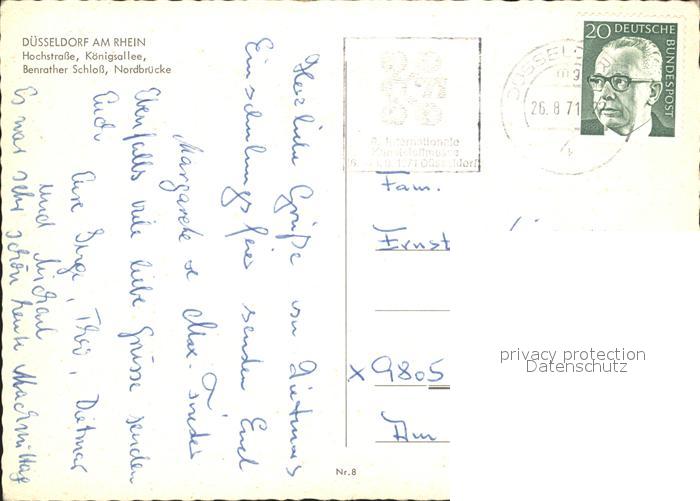 DÜSSELDORF AM RHEIN
Hochstraße, Königsallee,
Benrather Schloß, Nordbrücke
Herzliche Grüße von Dietmars
Einschulungsfeier senden Euch
Margarete
Ebenfalls viele liebe Grüsse senden
Euch
Eure Inge, Theo, Dietmar
und Michael
Es war sehr schön heute Nachmittag
26.8.71
20 DEUTSCHE
BUNDESPOST
Fam.
Ernst
x 9805
Am
Nr. 8
privacy protection
Datenschutz